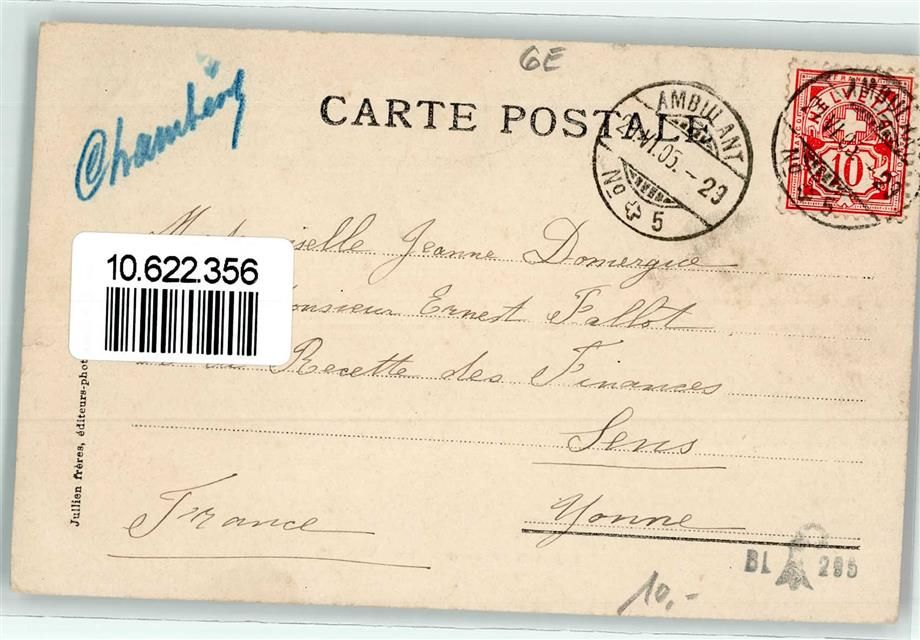 6E
CARTE POSTALE
AMBULANT
VI.05.-29
No 5
HELVETIA
10
AMBULANT
10.622.356
Jeanne Domergue
Monsieur Ernest Fallot
Recette des Finances
Sens
Yonne
France
Jullien frères, éditeurs-phot
BL 285
10.-